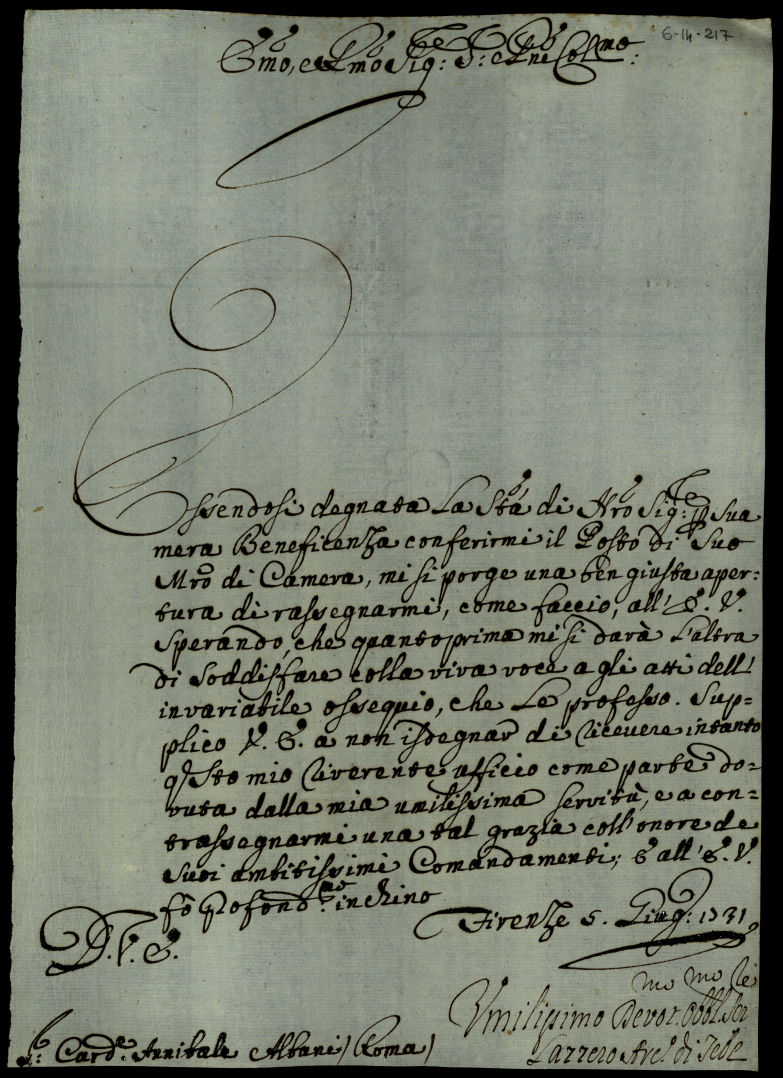 6-14-217
Emo, e Rmo Sig:re S: e Pne Colmo:
Essendosi degnata La Stà di Nro Sig:re p Sua
mera Beneficenza conferirmi il Posto di Suo
Mro di Camera, mi si porge una ben giusta aper=
tura di rassegnarmi, come faccio, all' E. V.
Sperando, che quanto prima mi si darà L'altra
di Soddisfare colla viva voce a gli atti dell'
invariabile ossequio, che Le professo. Sup=
plico V. E. a non isdegnar di ricevere intanto
qsto mio riverente ufficio come parte do=
vuta dalla mia umilissima servitù, e a con=
trassegnarmi una tal grazia coll' onore de
Suoi ambitissimi Comandamenti; E all' E. V.
fo profond:mo inchino
Firenze 5. Giug: 1731
D. V. E.
Umilissimo Devot.mo Obbl.mo Ser.re
Lazzero Arc. di Tebe
S: Card:e Annibale Albani / Roma /